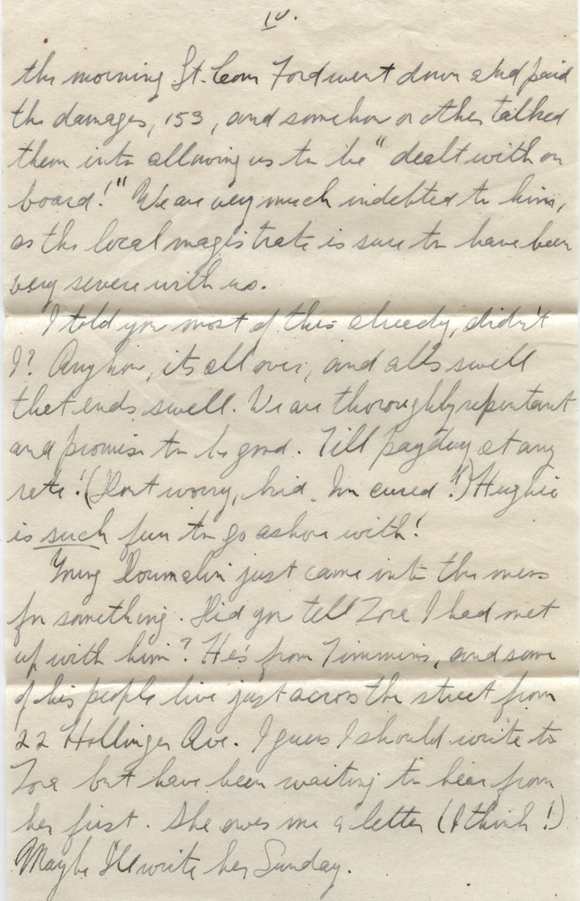 IV.
the morning St. Leon Ford went down and paid
the damages, 153, and somehow or other talked
them into allowing us to be "dealt with on
board!" We are very much indebted to him,
as the local magistrate is sure to have been
very severe with us.
I told you most of this already, didn't
I? Anyhow, its all over, and alls swell
that ends swell. We are thoroughly repentant
and promise to be good. Till payday at any
rate! (Dont worry, kid. Im cured!!) Hughie
is such fun to go ashore with!
Young just came into the mess
for something. Did you tell Zoe I had met
up with him? He's from Timmins, and some
of his people live just across the street from
22 Hollinger Ave. I guess I should write to
Zoe but have been waiting to hear from
her first. She owes me a letter (I think!)
Maybe I'll write her Sunday.